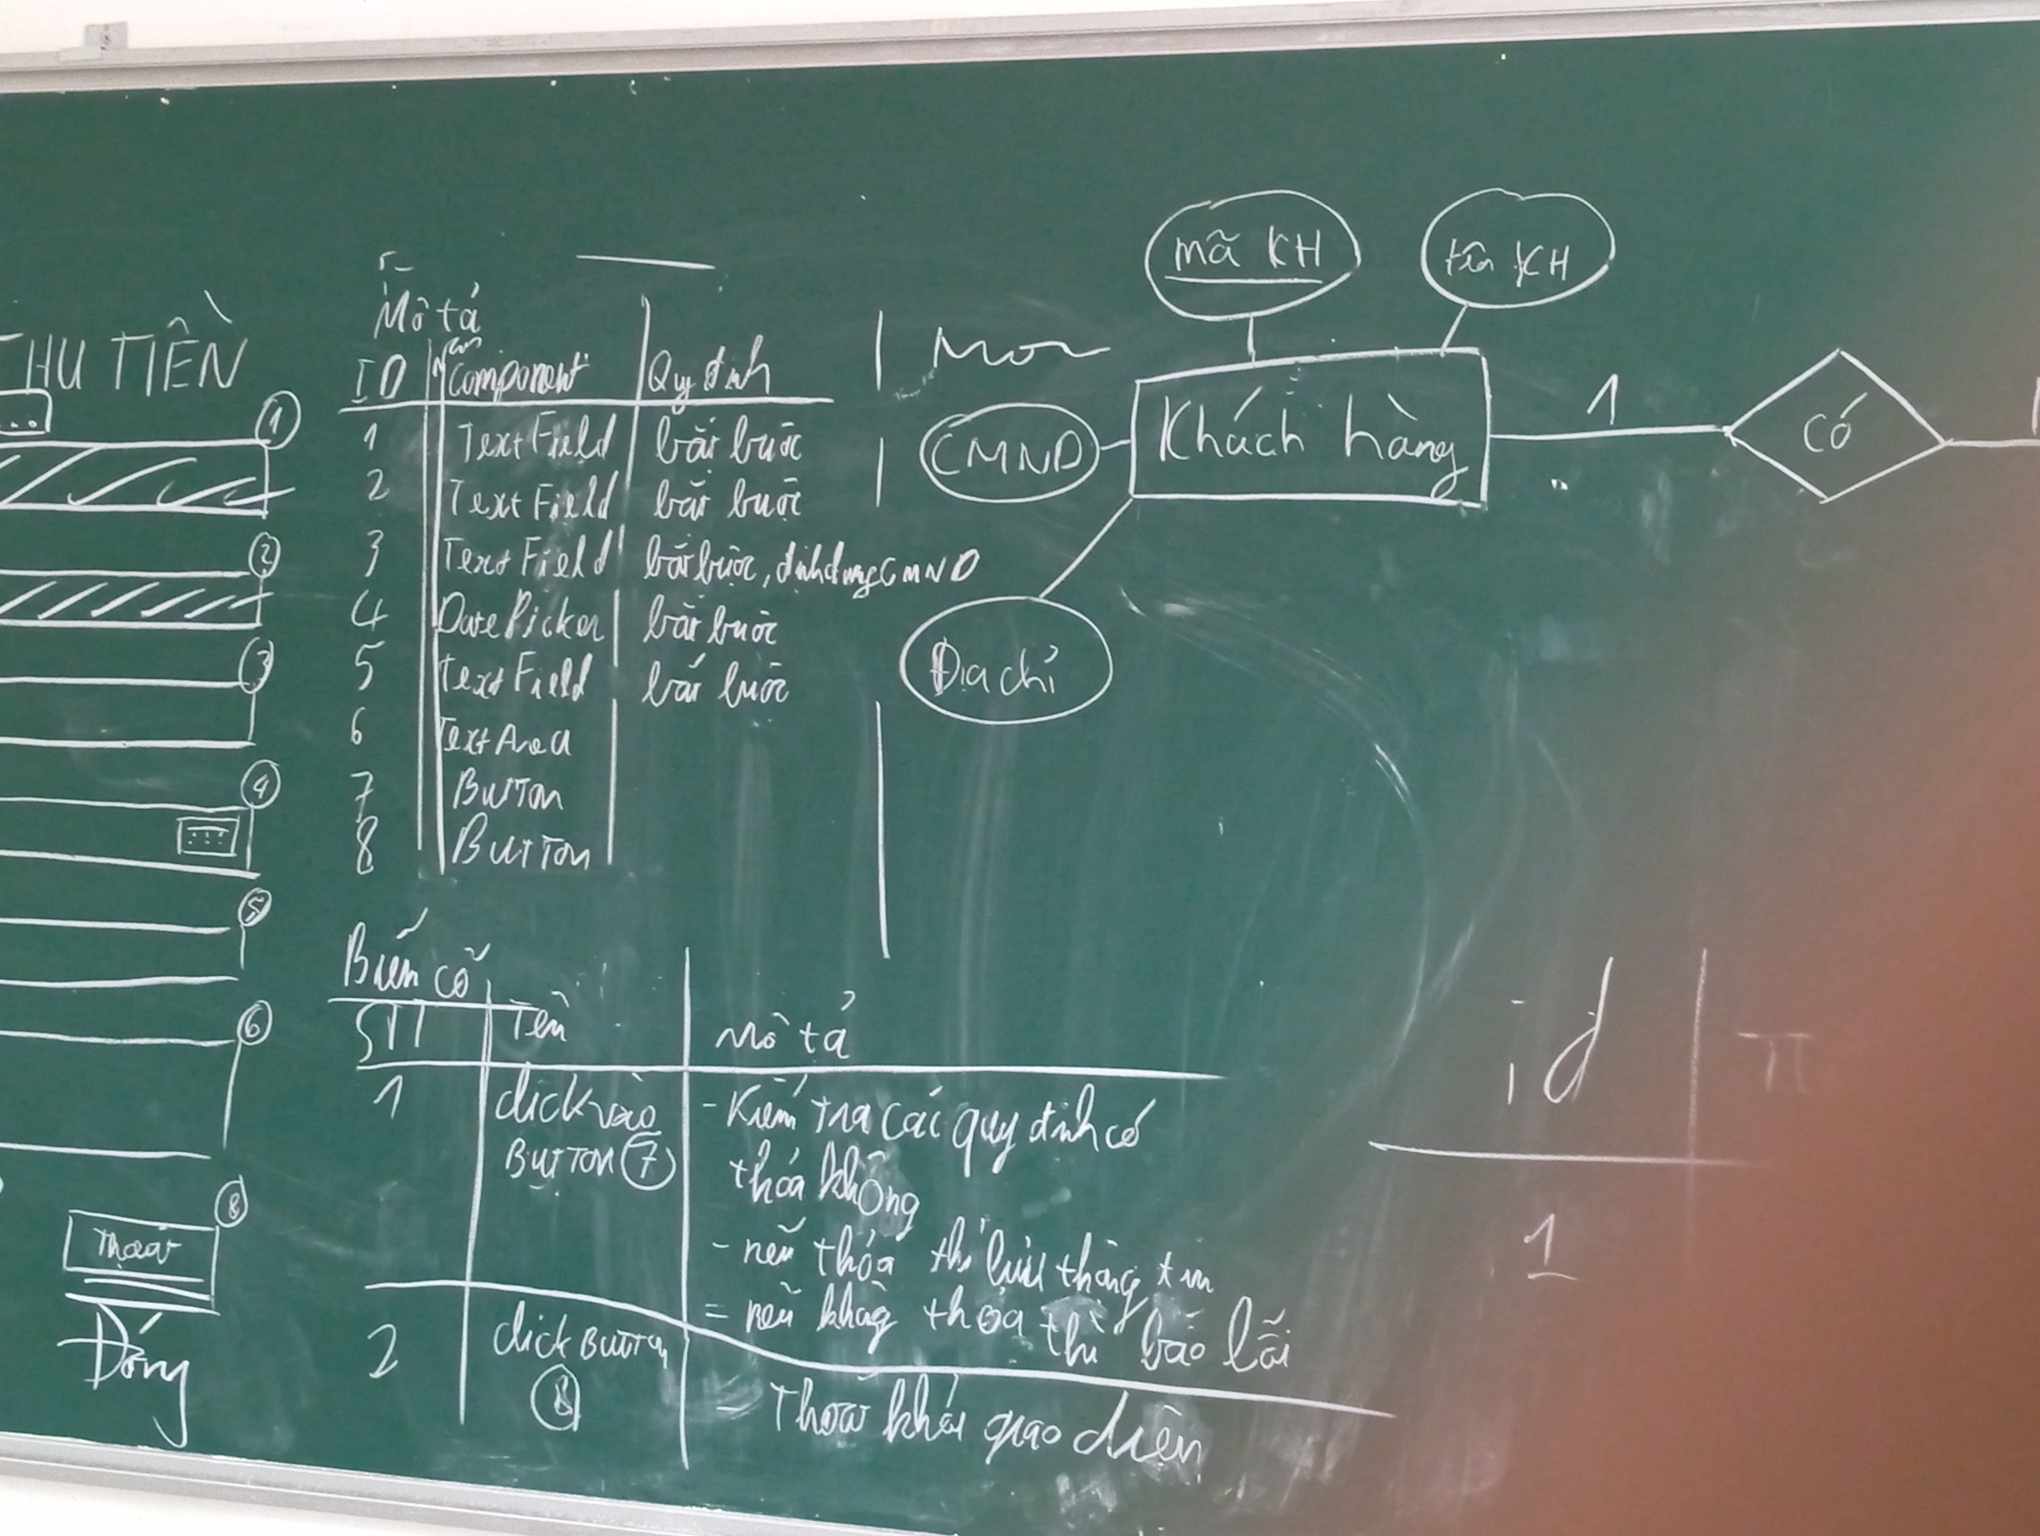 THU TIỀN
...
1
2
3
4
5
6
Thoát
8
Đóng
Mô tả
ID Component Quy định
1 TextField bắt buộc
2 TextField bắt buộc
3 TextField bắt buộc, định dạng CMND
4 DatePicker bắt buộc
5 TextField bắt buộc
6 TextArea
7 Button
8 Button
Biến cố
STT Tên Mô tả
1 click vào - Kiểm tra các quy định có
Button 7 thỏa không
- nếu thỏa thì lưu thông tin
= nếu không thỏa thì báo lỗi
2 click Button - Thoát khỏi giao diện
8
mã KH
tên KH
CMND
Khách hàng
1
có
Địa chỉ
id
1